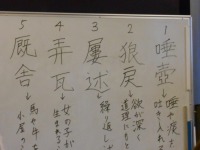 1 唾壺→唾や痰を吐き入れる
2 狼戻→欲が深く道理に
3 屢述→繰り返し
4 弄瓦→女の子が生まれる
5 厩舎→馬や牛を小屋